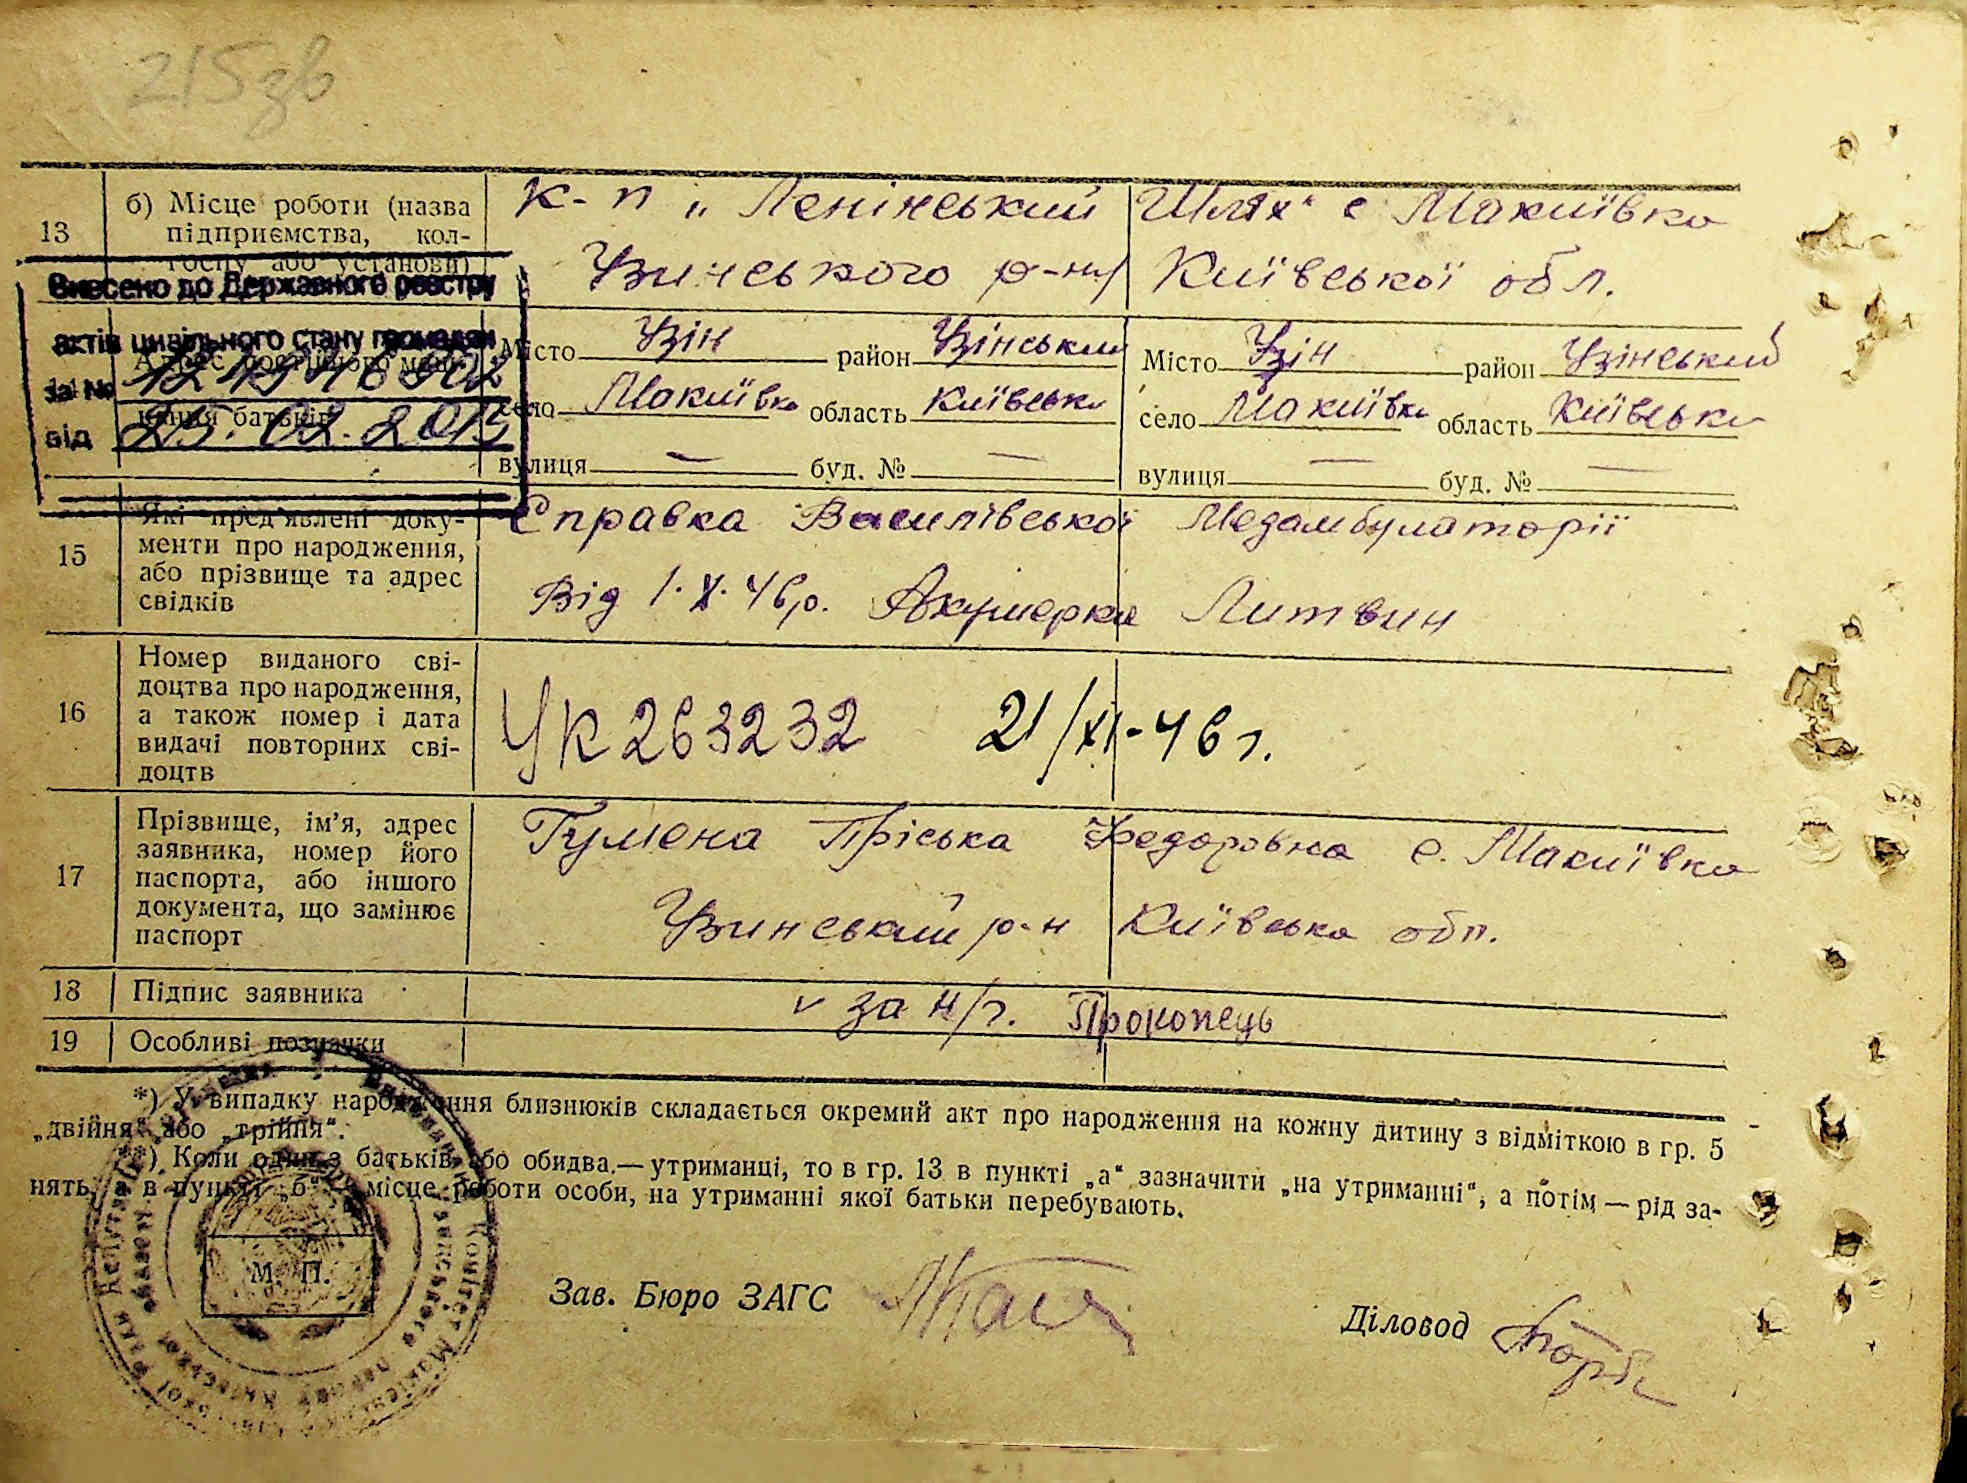 215зв
13
б) Місце роботи (назва
підприємства, кол-
госпу або установи)
к-п „Ленінський Шлях" с Макиївка
Узинського р-ну Київської обл.
Внесено до Державного реєстру
актів цивільного стану громадян
за №
від 25.02.2013
Адрес постійного меш-
кання батьків
Місто Узін район Узінський
село Макиївка область Київська
вулиця — буд. № —
Місто Узін район Узінський
село Макиївка область Київська
вулиця — буд. № —
15
Які пред'явлені доку-
менти про народження,
або прізвище та адрес
свідків
Справка Василівської Медамбулаторії
Від 1.X.46р. Акушерка Литвин
16
Номер виданого сві-
доцтва про народження,
а також номер і дата
видачі повторних сві-
доцтв
УК 263232 21/XI-46 г.
17
Прізвище, ім'я, адрес
заявника, номер його
паспорта, або іншого
документа, що замінює
паспорт
Гумена Пріська Федоровна с. Макиївка
Узинський р-н Київська обл.
18
Підпис заявника
v за н/г. Прокопець
19
Особливі позначки
*) У випадку народження близнюків складається окремий акт про народження на кожну дитину з відміткою в гр. 5
„двійня" або „трійня".
**) Коли один з батьків або обидва — утриманці, то в гр. 13 в пункті „а" зазначити „на утриманні", а потім — рід за-
нять, а в пункті „б" місце роботи особи, на утриманні якої батьки перебувають.
М. П.
Зав. Бюро ЗАГС
Діловод